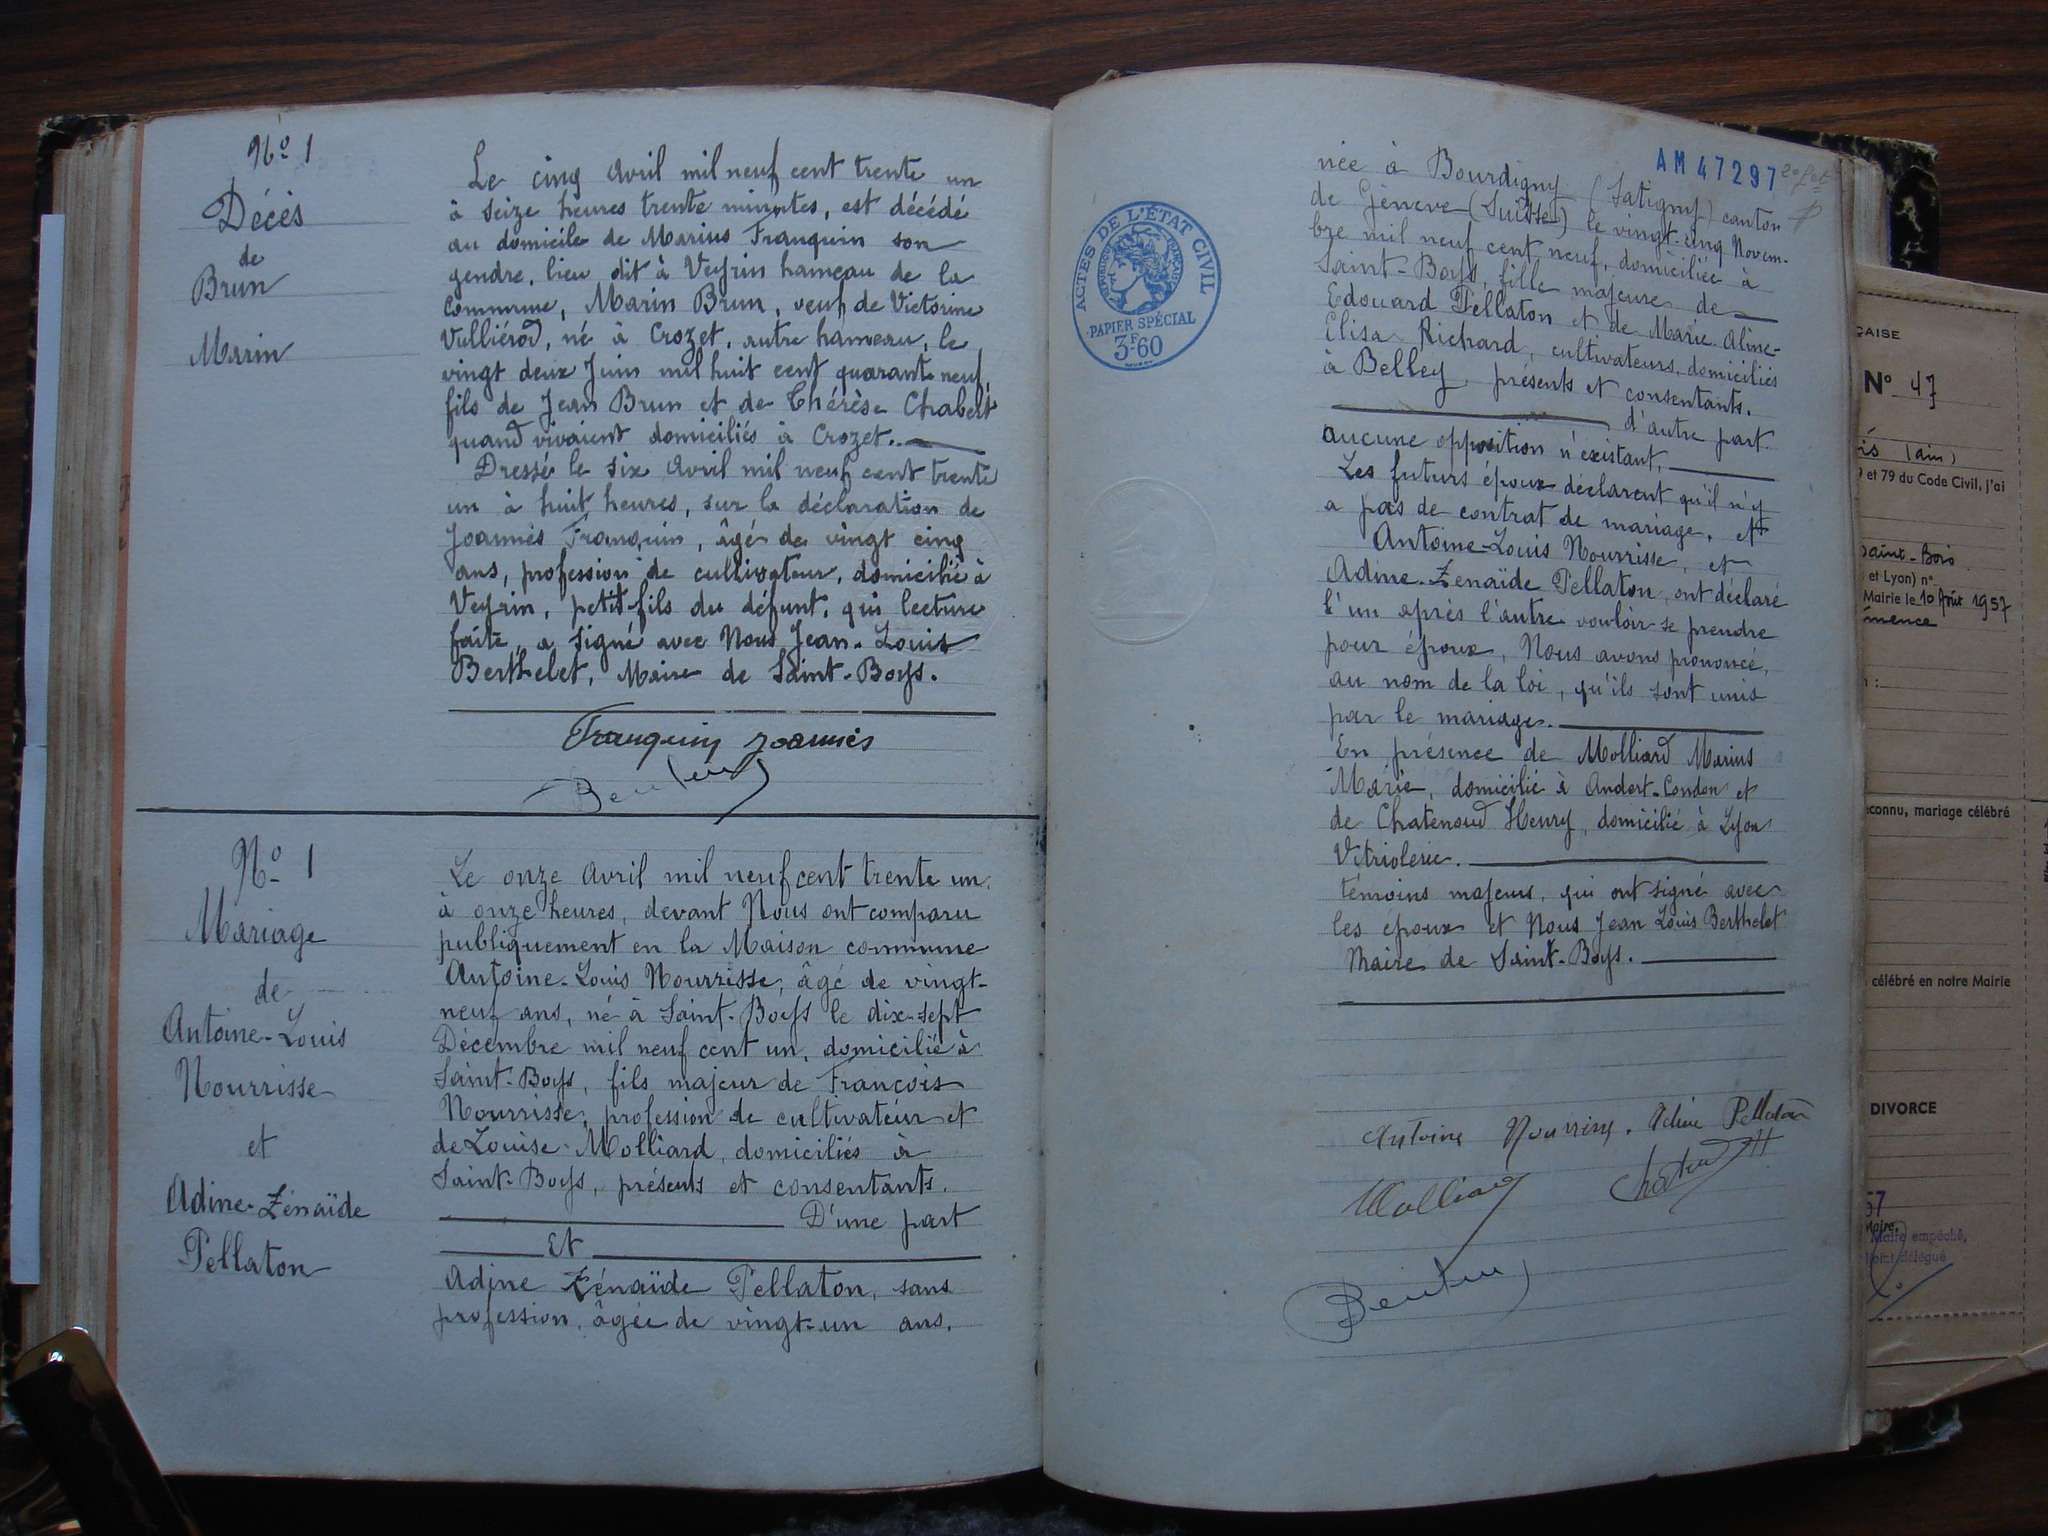 Nº 1
Décès
de
Brun
Marin
Le cinq Avril mil neuf cent trente un
à seize heures trente minutes, est décédé
au domicile de Marius Franquin son
gendre, lieu dit à Veyrin hameau de la
Commune, Marin Brun, veuf de Victorine
Vulliérod, né à Crozet, autre hameau, le
vingt deux Juin mil huit cent quarante neuf,
fils de Jean Brun et de Thérèse Chabert
quand vivaient domiciliés à Crozet.
Dressé le six Avril mil neuf cent trente
un à huit heures, sur la déclaration de
Joannès Franquin, âgé de vingt cinq
ans, profession de cultivateur, domicilié à
Veyrin, petit-fils du défunt, qui lecture
faite, a signé avec Nous Jean-Louis
Berthelet, Maire de Saint-Boys.
Franquin Joannès
Nº 1
Mariage
de
Antoine-Louis
Nourrisse
et
Adine-Zénaïde
Pellaton
Le onze Avril mil neuf cent trente un,
à onze heures, devant Nous ont comparu
publiquement en la Maison commune
Antoine-Louis Nourrisse, âgé de vingt-
neuf ans, né à Saint-Boys le dix-sept
Décembre mil neuf cent un, domicilié à
Saint-Boys, fils majeur de François
Nourrisse, profession de cultivateur et
de Louise Molliard, domiciliés à
Saint-Boys, présents et consentants.
D'une part
Et
Adine Zénaïde Pellaton, sans
profession, âgée de vingt-un ans,
AM 47297
née à Bourdigny (Satigny) canton
de Genève (Suisse) le vingt-cinq Novem-
bre mil neuf cent neuf, domiciliée à
Saint-Boys, fille majeure de
Edouard Pellaton et de Marie-Aline-
Elisa Richard, cultivateurs, domiciliés
à Belley, présents et consentants.
d'autre part.
aucune opposition n'existant,
Les futurs époux déclarent qu'il n'y
a pas de contrat de mariage. et
Antoine-Louis Nourrisse, et
Adine-Zenaïde Pellaton, ont déclaré
l'un après l'autre vouloir se prendre
pour époux, Nous avons prononcé,
au nom de la loi, qu'ils sont unis
par le mariage.
En présence de Molliard Marius
Marie, domicilié à Andert-Condon et
de Chatenoud Henry, domicilié à Lyon
Vitriolerie.
témoins majeurs, qui ont signé avec
les époux et Nous Jean Louis Berthelet
Maire de Saint-Boys.
Antoine Nourrisse. Adine Pellaton
Molliard
ACTES DE L'ÉTAT CIVIL
RÉPUBLIQUE FRANÇAISE
PAPIER SPÉCIAL
3F60
ÇAISE
Nº 47
(Ain)
et 79 du Code Civil, j'ai
Saint-Bois
et Lyon) nº
Mairie le 10 Août 1957
mence
econnu, mariage célébré
célébré en notre Mairie
DIVORCE
57
Maire empêché,
oint délégué